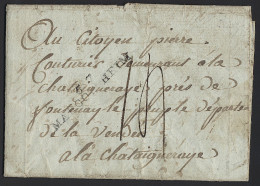 Au Citoyen pierre
Couturié demeurant a la
chataigneraye près de
fontenay le peuple départe
de la vendée
a la Chataigneraye